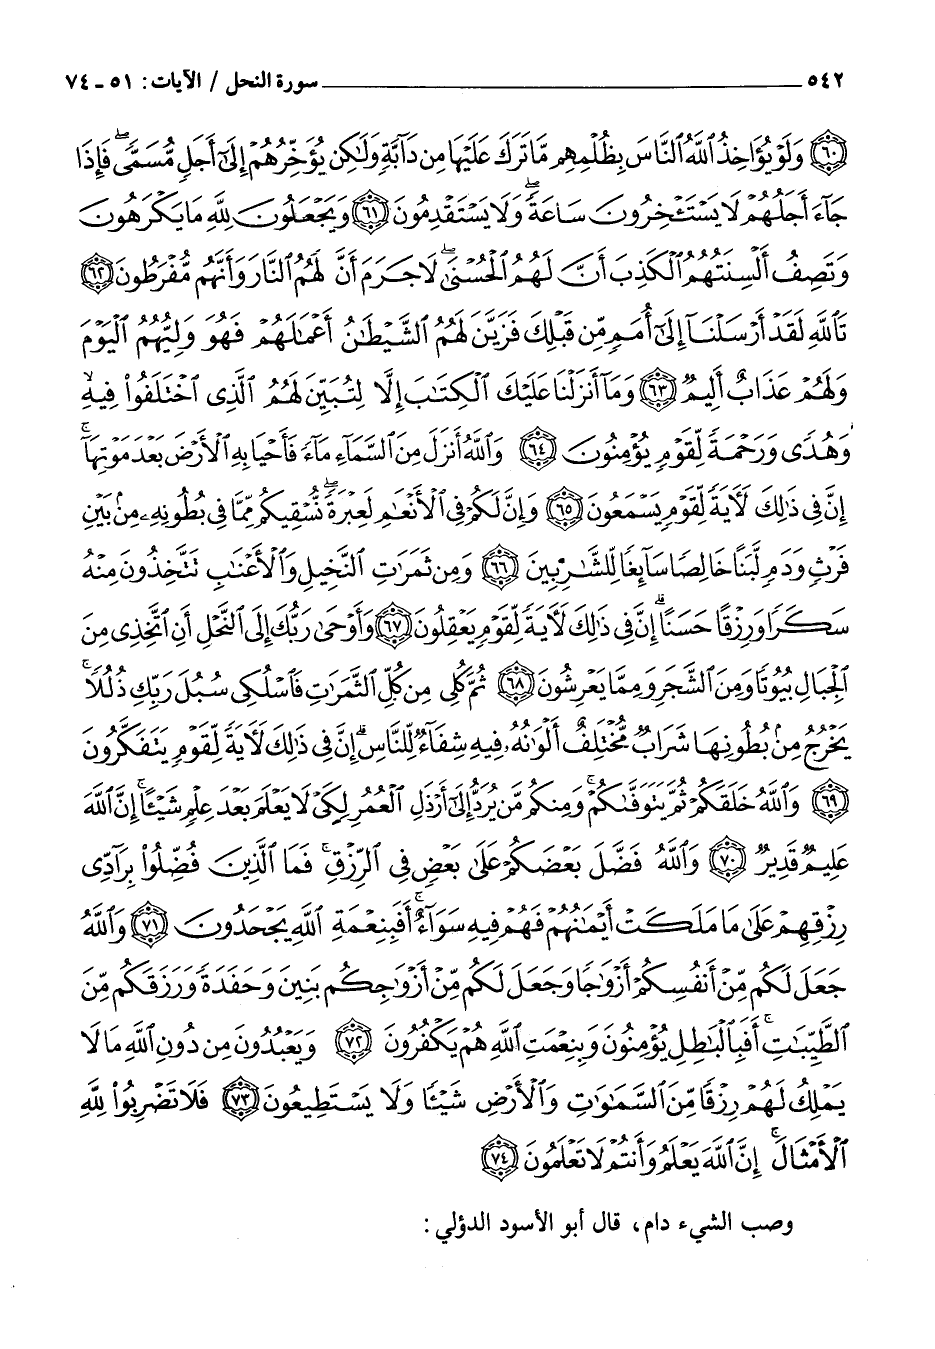 ٥٤٢ ــــــــــــــــ سورة النحل / الآيات: ٥١ ـ ٧٤
﴿٦٠﴾ وَلَوْ يُؤَاخِذُ ٱللَّهُ ٱلنَّاسَ بِظُلْمِهِم مَّا تَرَكَ عَلَيْهَا مِن دَآبَّةٍ وَلَٰكِن يُؤَخِّرُهُمْ إِلَىٰٓ أَجَلٍ مُّسَمًّى ۖ فَإِذَا
جَآءَ أَجَلُهُمْ لَا يَسْتَـْٔخِرُونَ سَاعَةً ۖ وَلَا يَسْتَقْدِمُونَ ﴿٦١﴾ وَيَجْعَلُونَ لِلَّهِ مَا يَكْرَهُونَ
وَتَصِفُ أَلْسِنَتُهُمُ ٱلْكَذِبَ أَنَّ لَهُمُ ٱلْحُسْنَىٰ ۖ لَا جَرَمَ أَنَّ لَهُمُ ٱلنَّارَ وَأَنَّهُم مُّفْرَطُونَ ﴿٦٢﴾
تَٱللَّهِ لَقَدْ أَرْسَلْنَآ إِلَىٰٓ أُمَمٍ مِّن قَبْلِكَ فَزَيَّنَ لَهُمُ ٱلشَّيْطَٰنُ أَعْمَٰلَهُمْ فَهُوَ وَلِيُّهُمُ ٱلْيَوْمَ
وَلَهُمْ عَذَابٌ أَلِيمٌ ﴿٦٣﴾ وَمَآ أَنزَلْنَا عَلَيْكَ ٱلْكِتَٰبَ إِلَّا لِتُبَيِّنَ لَهُمُ ٱلَّذِى ٱخْتَلَفُوا۟ فِيهِ ۙ
وَهُدًى وَرَحْمَةً لِّقَوْمٍ يُؤْمِنُونَ ﴿٦٤﴾ وَٱللَّهُ أَنزَلَ مِنَ ٱلسَّمَآءِ مَآءً فَأَحْيَا بِهِ ٱلْأَرْضَ بَعْدَ مَوْتِهَآ ۚ
إِنَّ فِى ذَٰلِكَ لَـَٔايَةً لِّقَوْمٍ يَسْمَعُونَ ﴿٦٥﴾ وَإِنَّ لَكُمْ فِى ٱلْأَنْعَٰمِ لَعِبْرَةً ۖ نُّسْقِيكُم مِّمَّا فِى بُطُونِهِۦ مِنۢ بَيْنِ
فَرْثٍ وَدَمٍ لَّبَنًا خَالِصًا سَآئِغًا لِّلشَّٰرِبِينَ ﴿٦٦﴾ وَمِن ثَمَرَٰتِ ٱلنَّخِيلِ وَٱلْأَعْنَٰبِ تَتَّخِذُونَ مِنْهُ
سَكَرًا وَرِزْقًا حَسَنًا ۗ إِنَّ فِى ذَٰلِكَ لَـَٔايَةً لِّقَوْمٍ يَعْقِلُونَ ﴿٦٧﴾ وَأَوْحَىٰ رَبُّكَ إِلَى ٱلنَّحْلِ أَنِ ٱتَّخِذِى مِنَ
ٱلْجِبَالِ بُيُوتًا وَمِنَ ٱلشَّجَرِ وَمِمَّا يَعْرِشُونَ ﴿٦٨﴾ ثُمَّ كُلِى مِن كُلِّ ٱلثَّمَرَٰتِ فَٱسْلُكِى سُبُلَ رَبِّكِ ذُلُلًا ۚ
يَخْرُجُ مِنۢ بُطُونِهَا شَرَابٌ مُّخْتَلِفٌ أَلْوَٰنُهُۥ فِيهِ شِفَآءٌ لِّلنَّاسِ ۗ إِنَّ فِى ذَٰلِكَ لَـَٔايَةً لِّقَوْمٍ يَتَفَكَّرُونَ
﴿٦٩﴾ وَٱللَّهُ خَلَقَكُمْ ثُمَّ يَتَوَفَّىٰكُمْ ۚ وَمِنكُم مَّن يُرَدُّ إِلَىٰٓ أَرْذَلِ ٱلْعُمُرِ لِكَىْ لَا يَعْلَمَ بَعْدَ عِلْمٍ شَيْـًٔا ۚ إِنَّ ٱللَّهَ
عَلِيمٌ قَدِيرٌ ﴿٧٠﴾ وَٱللَّهُ فَضَّلَ بَعْضَكُمْ عَلَىٰ بَعْضٍ فِى ٱلرِّزْقِ ۚ فَمَا ٱلَّذِينَ فُضِّلُوا۟ بِرَآدِّى
رِزْقِهِمْ عَلَىٰ مَا مَلَكَتْ أَيْمَٰنُهُمْ فَهُمْ فِيهِ سَوَآءٌ ۚ أَفَبِنِعْمَةِ ٱللَّهِ يَجْحَدُونَ ﴿٧١﴾ وَٱللَّهُ
جَعَلَ لَكُم مِّنْ أَنفُسِكُمْ أَزْوَٰجًا وَجَعَلَ لَكُم مِّنْ أَزْوَٰجِكُم بَنِينَ وَحَفَدَةً وَرَزَقَكُم مِّنَ
ٱلطَّيِّبَٰتِ ۚ أَفَبِٱلْبَٰطِلِ يُؤْمِنُونَ وَبِنِعْمَتِ ٱللَّهِ هُمْ يَكْفُرُونَ ﴿٧٢﴾ وَيَعْبُدُونَ مِن دُونِ ٱللَّهِ مَا لَا
يَمْلِكُ لَهُمْ رِزْقًا مِّنَ ٱلسَّمَٰوَٰتِ وَٱلْأَرْضِ شَيْـًٔا وَلَا يَسْتَطِيعُونَ ﴿٧٣﴾ فَلَا تَضْرِبُوا۟ لِلَّهِ
ٱلْأَمْثَالَ ۚ إِنَّ ٱللَّهَ يَعْلَمُ وَأَنتُمْ لَا تَعْلَمُونَ ﴿٧٤﴾
وصب الشيء دام، قال أبو الأسود الدؤلي: